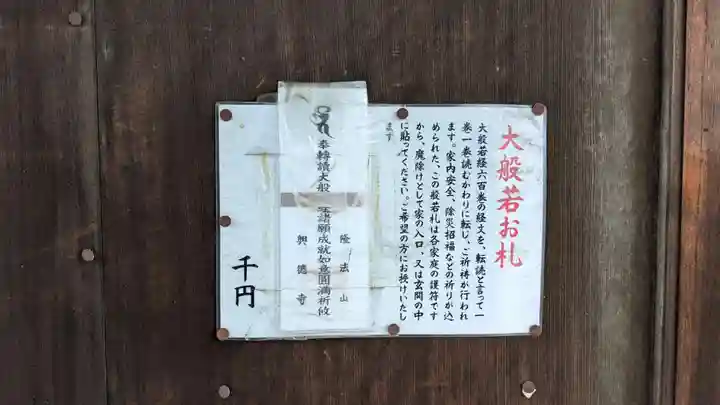 大般若お札
大般若経六百巻の経文を、転読と言って一
巻一巻読むかわりに転じ、ご祈祷が行われ
ます。家内安全、除災招福などの祈りが込
められた、この般若札は各家庭の護符です
から、魔除けとして家の入口、又は玄関の中
に貼ってください。ご希望の方にお授けいたし
ます
奉轉讀大般 諸願成就如意圓満祈攸
隆法山
興德寺
千円